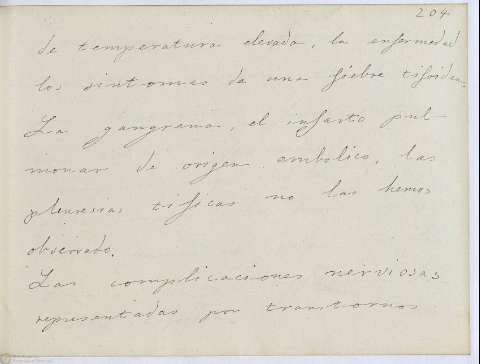 204
de temperatura elevada, la enfermedad
los sintomas de una fiebre tifoidea.
La gangrena, el infarto pul-
monar de origen embolico, las
pleuresias tificas no las hemos
observado.
Las complicaciones nerviosas
representadas por transtornos